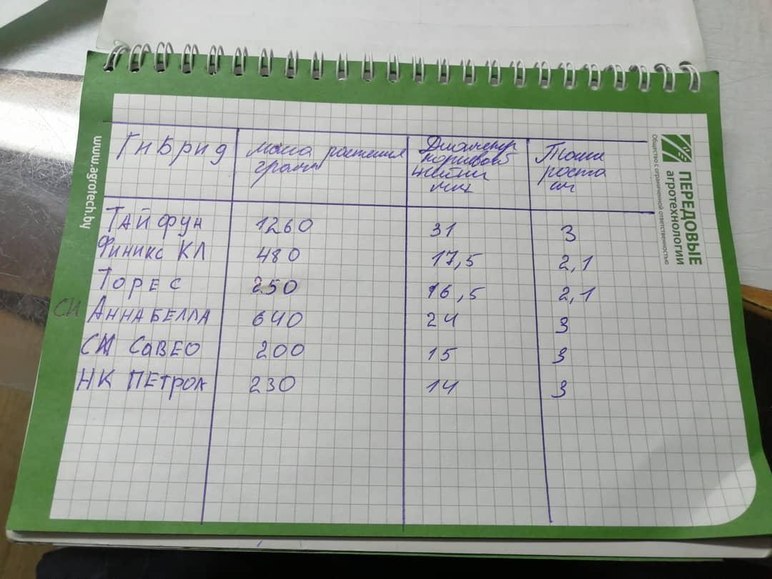 www.agrotech.by
ПЕРЕДОВЫЕ
агротехнологии
Общество с ограниченной ответственностью
Гибрид | масса растения грамм | Диаметр корневой шейки мм | Точка роста см
Тайфун | 1260 | 31 | 3
Финикс КЛ | 480 | 17,5 | 2,1
Торес | 250 | 16,5 | 2,1
СИ Аннабелла | 640 | 24 | 3
СИ Савео | 200 | 15 | 3
НК Петрол | 230 | 14 | 3